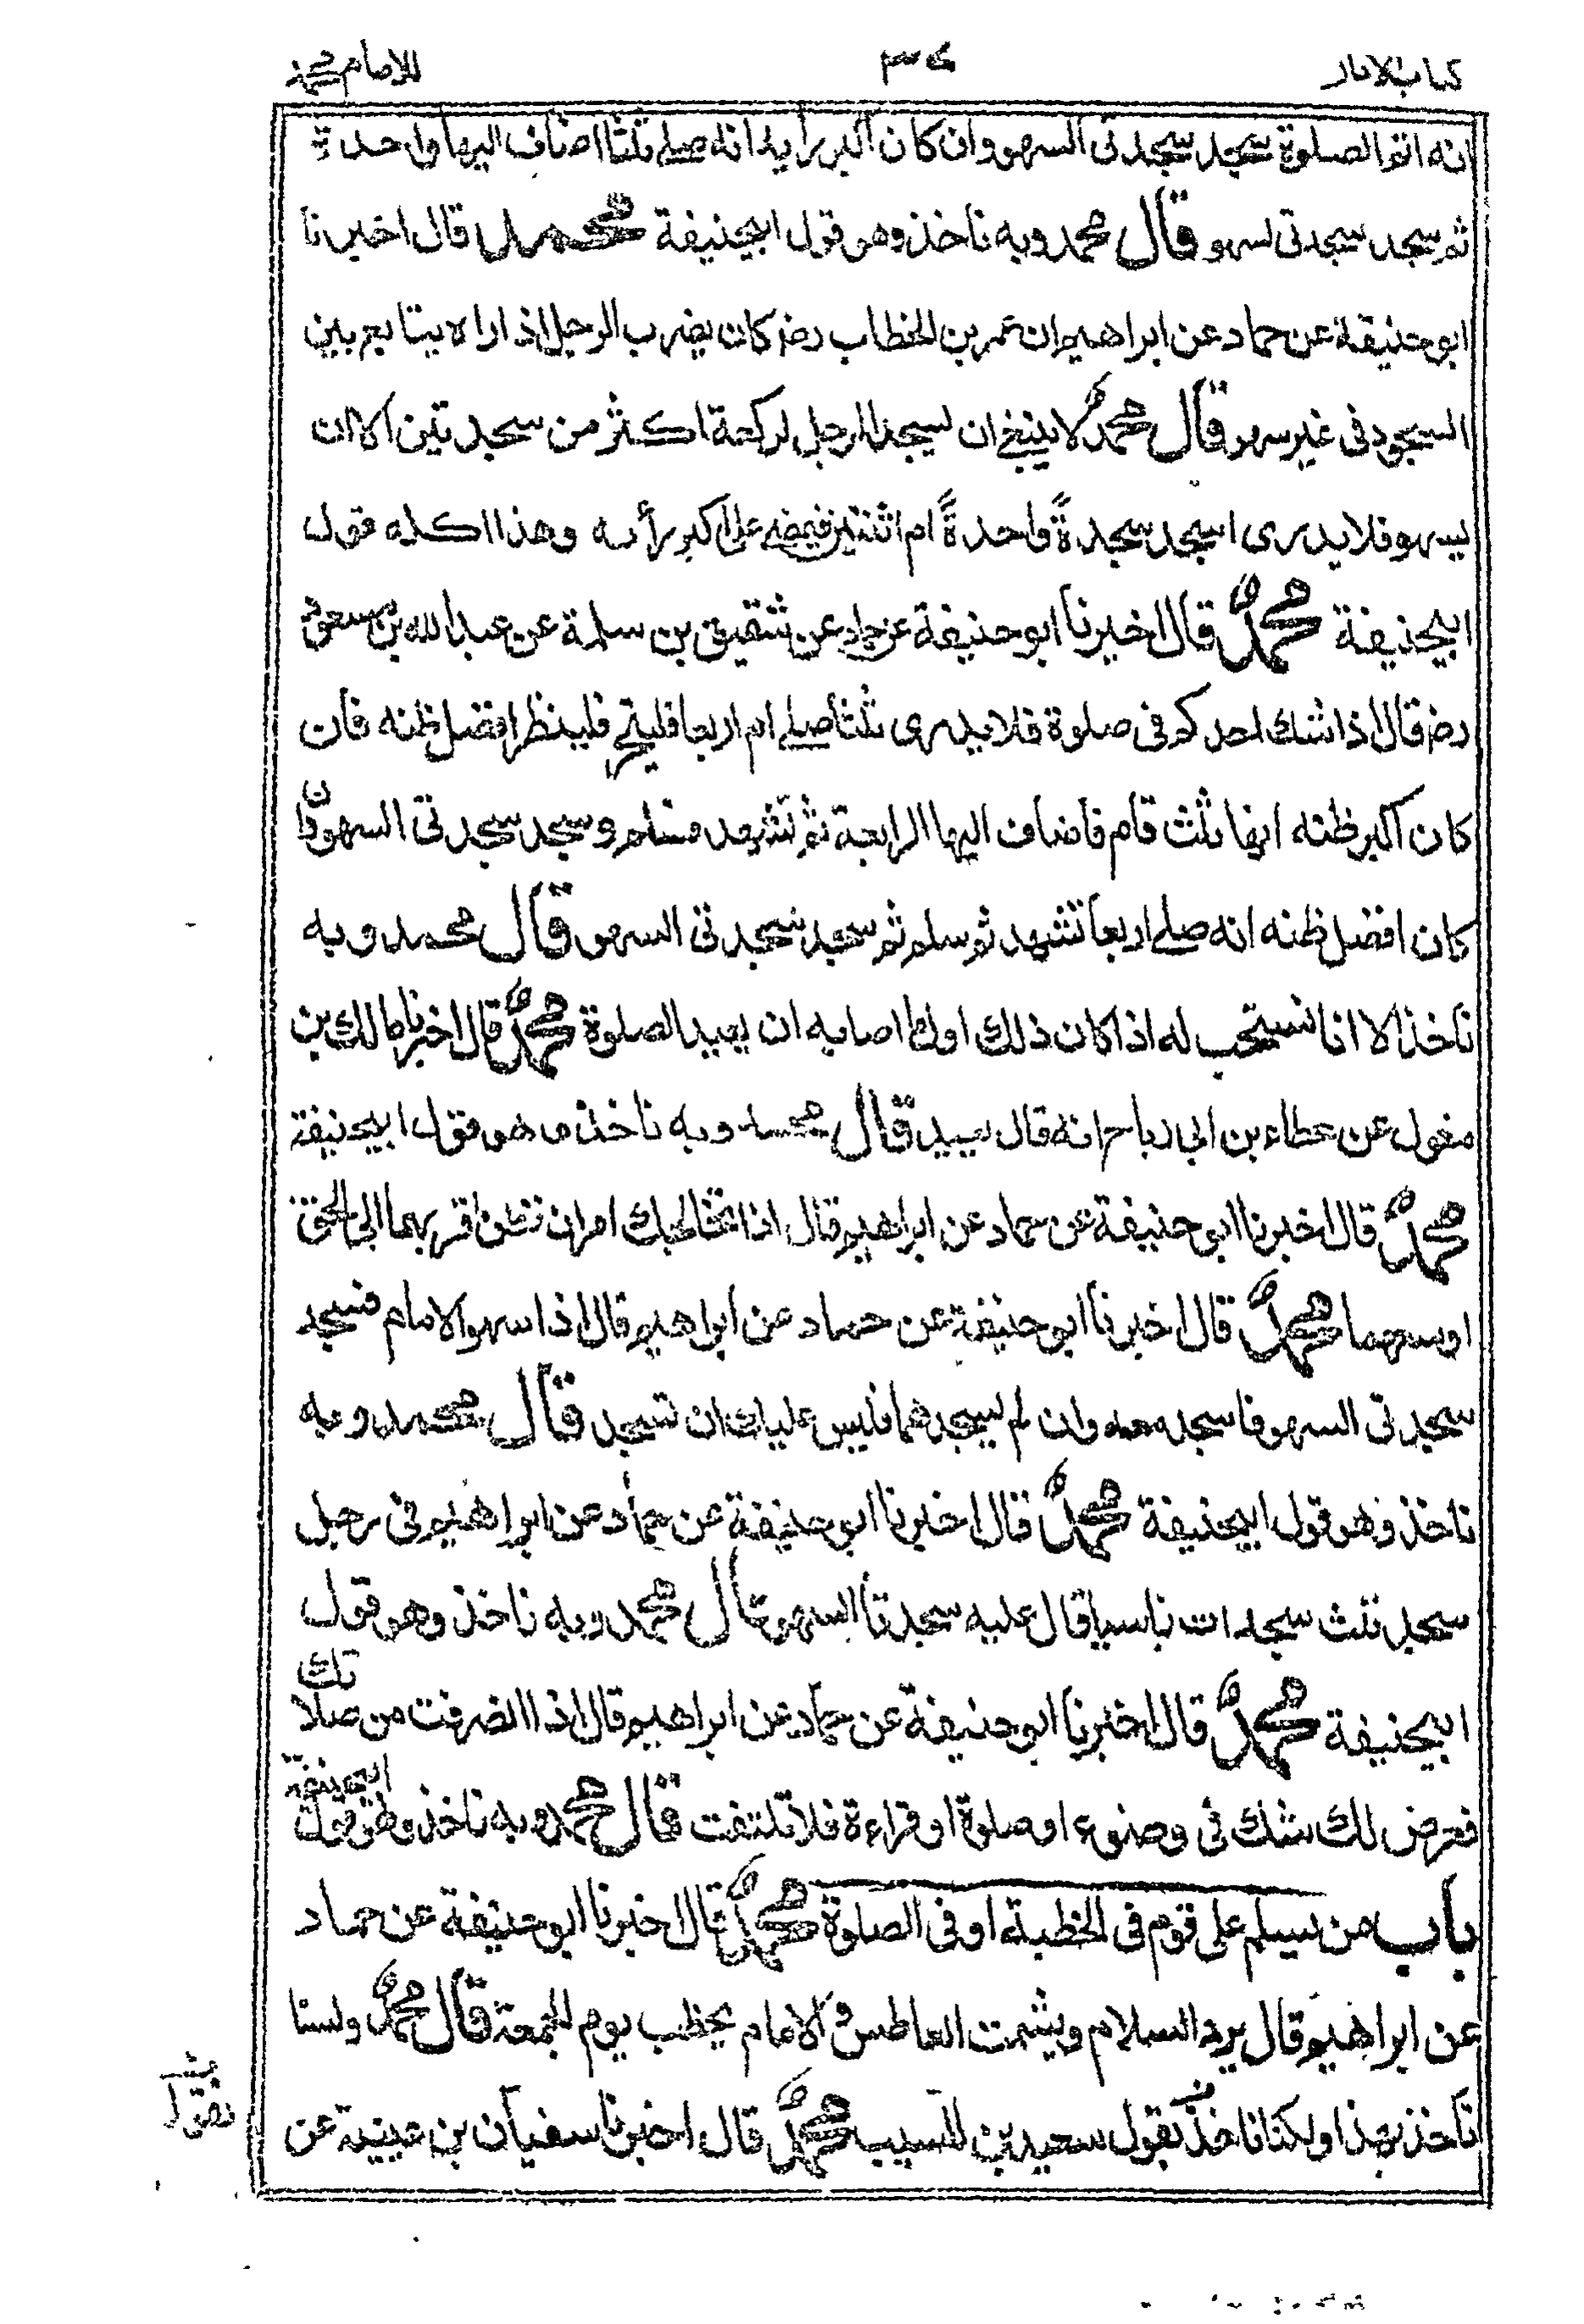 كتاب الاثار ٣٤ للامام محمد
انه اتم الصلوة سجد سجدتى السهو وان كان اكبر رأيه انه صلى ثلثا اضاف اليها واحدة
ثم سجد سجدتى لسهو قال محمد وبه ناخذ وهو قول ابيحنيفة محمد قال اخبرنا
ابو حنيفة عن حماد عن ابراهيم ان عمر بن الخطاب رضـ كان يضرب الرجل اذا راه يتابع بين
السجود فى غير سهو قال محمد لا ينبغى ان يسجد الرجل لركعة اكثر من سجدتين الا ان
يسهو فلا يدرى اسجد سجدةً واحدةً ام اثنتين فيمضى على اكبر رأيه وهذا اكله قول
ابيحنيفة محمد قال اخبرنا ابو حنيفة عن حماد عن شقيق بن سلمة عن عبد الله بن مسعود
رضـ قال اذا شك احدكم فى صلوة فلا يدرى ثلثا صلى ام اربعا فليتحر فلينظر افضل ظنه فان
كان اكبر ظنه انها ثلث قام فاضاف اليها الرابعة ثم تشهد فسلم وسجد سجدتى السهو وان
كان افضل ظنه انه صلى اربعا تشهد ثم سلم ثم سجد سجدتى السهو قال محمد وبه
ناخذ الا انا نستحب له اذا كان ذلك اول ما اصابه ان يعيد الصلوة محمد قال اخبرنا مالك بن
مغول عن عطاء بن ابى رباح انه قال يعيد قال محمد وبه ناخذ وهو قول ابيحنيفة
محمد قال اخبرنا ابو حنيفة عن حماد عن ابراهيم قال اذا تخالجك امران فظن اقربهما الى الحق
اوسعهما محمد قال اخبرنا ابو حنيفة عن حماد عن ابراهيم قال اذا سهو الامام فسجد
سجدتى السهو فاسجد معه وان لم يسجدهما فليس عليك ان تسجد قال محمد وبه
ناخذ وهو قول ابيحنيفة محمد قال اخبرنا ابو حنيفة عن حماد عن ابراهيم فى رجل
سجد ثلث سجدات ناسيا قال عليه سجدتا السهو قال محمد وبه ناخذ وهو قول
ابيحنيفة محمد قال اخبرنا ابو حنيفة عن حماد عن ابراهيم قال اذا انصرفت من صلاتك
فعرض لك شك فى وضوء او صلوة او قراءة فلا تلتفت قال محمد وبه ناخذ وهو قول ابيحنيفة
باب من يسلم على قوم فى الخطبة او فى الصلوة محمد قال اخبرنا ابو حنيفة عن حماد
عن ابراهيم قال يرد السلام ويشمت العاطس والامام يخطب يوم الجمعة قال محمد ولسنا
ناخذ بهذا ولكنا ناخذ بقول سعيد بن المسيب محمد قال اخبرنا سفيان بن عيينة عن